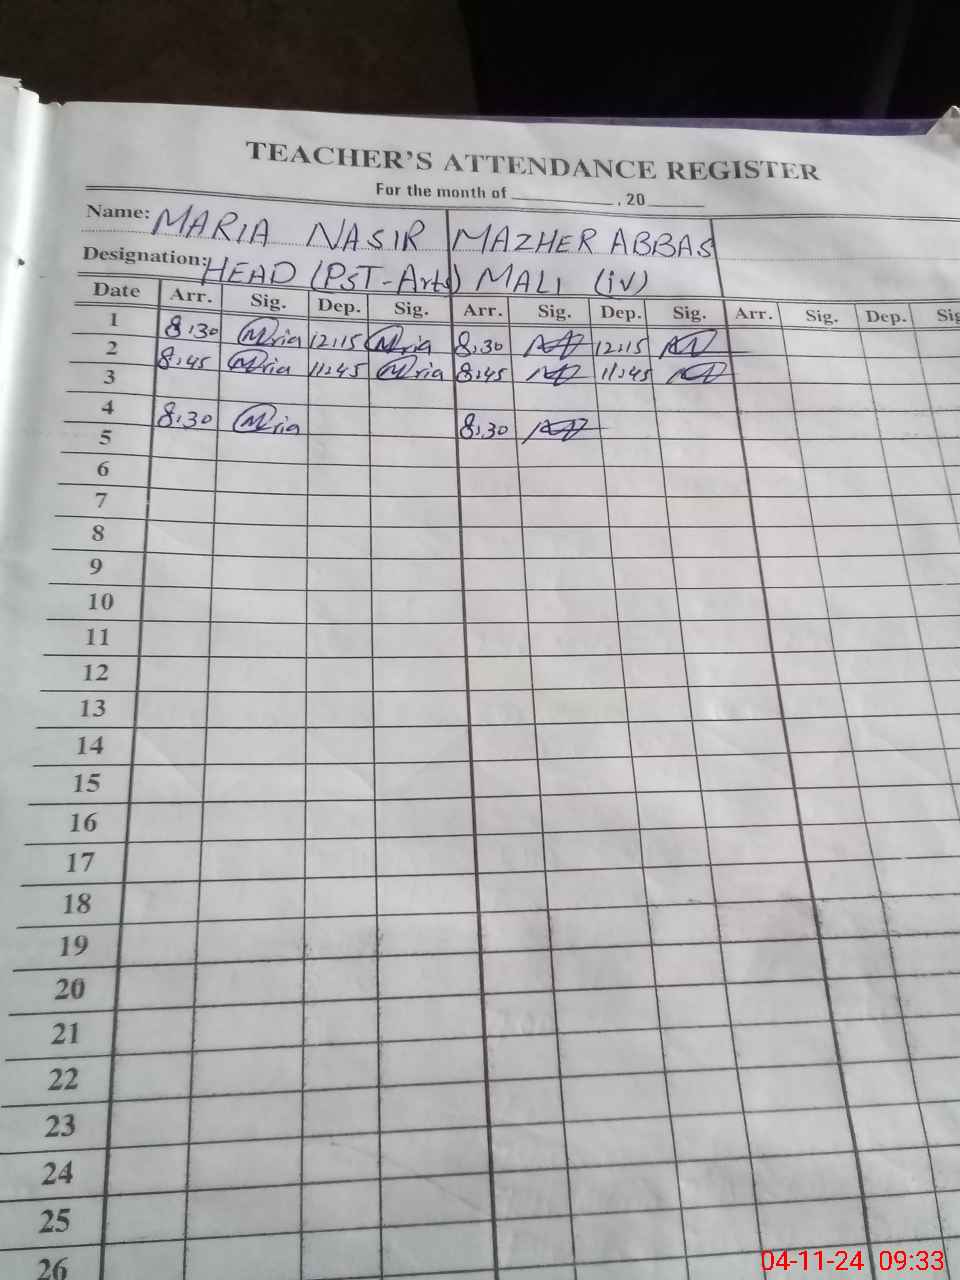 TEACHER'S ATTENDANCE REGISTER
For the month of ____________, 20______
Name: MARIA NASIR MAZHER ABBAS
Designation: HEAD (PST-Arts) MALI (iv)
Date Arr. Sig. Dep. Sig. Arr. Sig. Dep. Sig. Arr. Sig. Dep. Sig
1 8:30 Maria 12:15 Maria 8:30 12:15
2 8:45 Maria 11:45 Maria 8:45 11:45
3
4 8:30 Maria 8:30
5
6
7
8
9
10
11
12
13
14
15
16
17
18
19
20
21
22
23
24
25
26
04-11-24 09:33